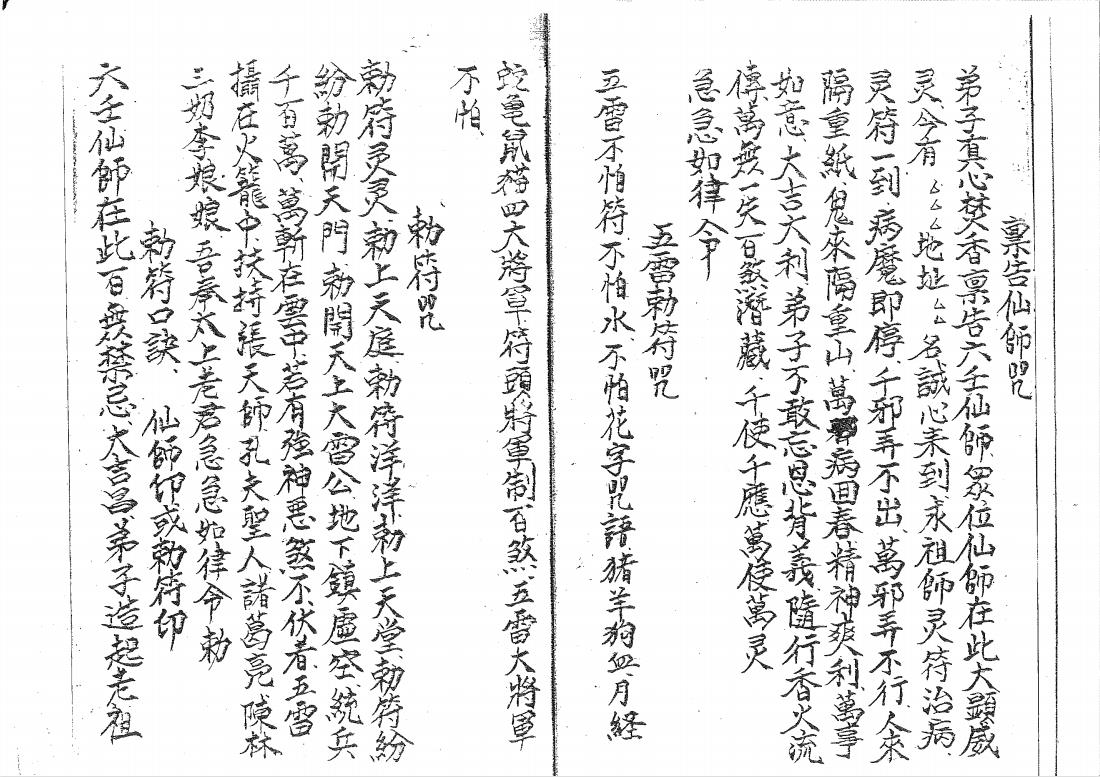 禀告仙師咒
弟子真心焚香禀告六壬仙師眾位仙師在此大顕威
灵今有厶厶厶地址厶厶名誠心来到求祖師灵符治病
灵符一到病魔即停千邪弄不出萬邪弄不行人來
隔重紙鬼來隔重山萬病回春精神爽利萬事
如意大吉大利弟子不敢忘恩背義隨行香火流
傳萬無一失百煞潛藏千使千應萬使萬灵
急急如律令
五雷勅符咒
五雷不怕符不怕水不怕花字咒語猪羊狗血月経
蛇龟鼠猫四大將軍符頭將軍制百煞五雷大將軍
不怕
勅符咒
勅符灵灵勅上天庭勅符洋洋勅上天堂勅符紛
紛勅開天門勅開天上大雷公地下鎮虛空統兵
千百萬萬斬在雲中若有強神悪煞不伏者五雷
攝在火籠中扶持張天師孔夫聖人諸葛亮陳林
三奶李娘娘吾奉太上老君急急如律令勅
勅符口訣 仙師印或勅符印
六壬仙師在此百無禁忌大吉昌弟子造起老祖